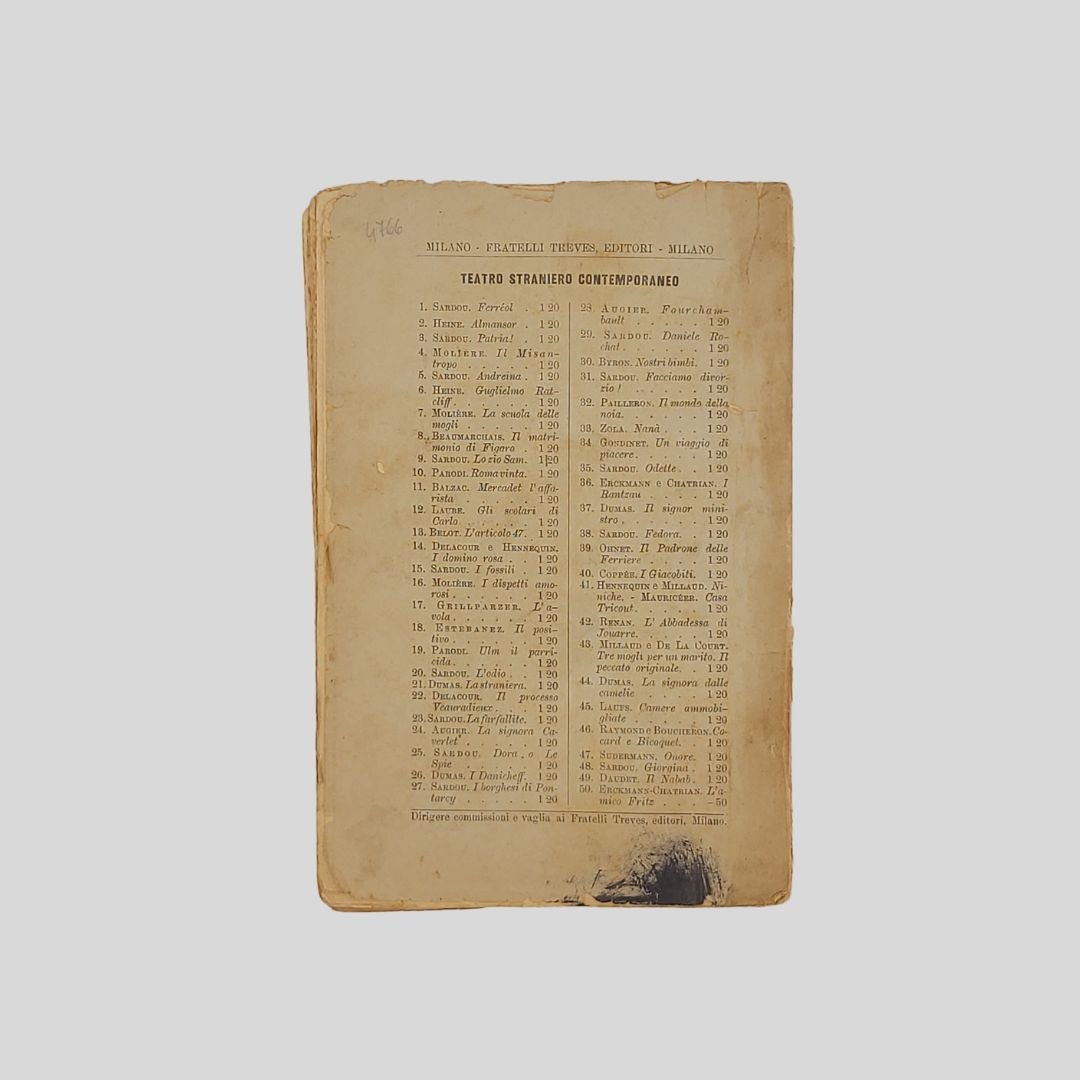 4766
MILANO - FRATELLI TREVES, EDITORI - MILANO
TEATRO STRANIERO CONTEMPORANEO
1. SARDOU. Ferréol . 1 20
2. HEINE. Almansor . 1 20
3. SARDOU. Patria! . 1 20
4. MOLIÈRE. Il Misan-
tropo . . . . . 1 20
5. SARDOU. Andreina . 1 20
6. HEINE. Guglielmo Rat-
cliff. . . . . . 1 20
7. MOLIÈRE. La scuola delle
mogli . . . . . 1 20
8. BEAUMARCHAIS. Il matri-
monio di Figaro . 1 20
9. SARDOU. Lo zio Sam. 1 20
10. PARODI. Roma vinta. 1 20
11. BALZAC. Mercadet l'affa-
rista . . . . . 1 20
12. LAURE. Gli scolari di
Carlo . . . . . 1 20
13. BELOT. L'articolo 47. 1 20
14. DELACOUR e HENNEQUIN.
I domino rosa . . 1 20
15. SARDOU. I fossili . 1 20
16. MOLIÈRE. I dispetti amo-
rosi . . . . . . 1 20
17. GRILLPARZER. L'a-
vola . . . . . . 1 20
18. ESTEBANEZ. Il posi-
tivo . . . . . . 1 20
19. PARODI. Ulm il parri-
cida. . . . . . 1 20
20. SARDOU. L'odio . . 1 20
21. DUMAS. La straniera. 1 20
22. DELACOUR. Il processo
Veauradieux . . . 1 20
23. SARDOU. La farfallite. 1 20
24. AUGIER. La signora Ca-
verlet . . . . . 1 20
25. SARDOU. Dora, o Le
Spie . . . . . 1 20
26. DUMAS. I Danicheff. 1 20
27. SARDOU. I borghesi di Pon-
tarcy . . . . . 1 20
28. AUGIER. Fourcham-
bault . . . . . 1 20
29. SARDOU. Daniele Ro-
chat . . . . . . 1 20
30. BYRON. Nostri bimbi. 1 20
31. SARDOU. Facciamo divor-
zio! . . . . . . 1 20
32. PAILLERON. Il mondo della
noia. . . . . . 1 20
33. ZOLA. Nanà . . . 1 20
34. GONDINET. Un viaggio di
piacere. . . . . 1 20
35. SARDOU. Odette. . 1 20
36. ERCKMANN e CHATRIAN. I
Rantzau . . . . 1 20
37. DUMAS. Il signor mini-
stro . . . . . . 1 20
38. SARDOU. Fedora. . 1 20
39. OHNET. Il Padrone delle
Ferriere . . . . 1 20
40. COPPÉE. I Giacobiti. 1 20
41. HENNEQUIN e MILLAUD. Ni-
niche. - MAURICÉER. Casa
Tricout. . . . . 1 20
42. RENAN. L'Abbadessa di
Jouarre. . . . . 1 20
43. MILLAUD e DE LA COURT.
Tre mogli per un marito. Il
peccato originale. . 1 20
44. DUMAS. La signora dalle
camelie . . . . 1 20
45. LAUFS. Camere ammobi-
gliate . . . . . 1 20
46. RAYMOND e BOUCHERON. Co-
card e Bicoquet. . 1 20
47. SUDERMANN. Onore. 1 20
48. SARDOU. Giorgina . 1 20
49. DAUDET. Il Nabab. 1 20
50. ERCKMANN-CHATRIAN. L'a-
mico Fritz . . . - 50
Dirigere commissioni e vaglia ai Fratelli Treves, editori, Milano.